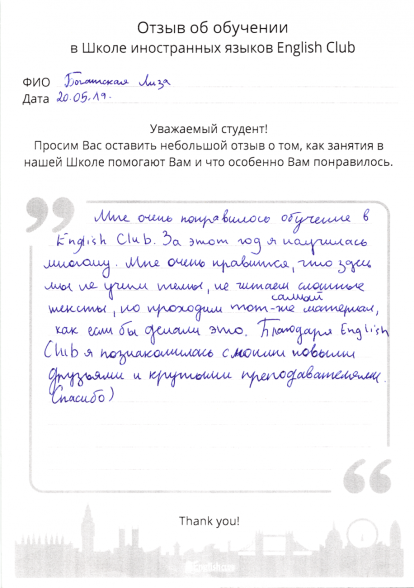 Отзыв об обучении
в Школе иностранных языков English Club
ФИО Богатская Лиза
Дата 20.05.19.
Уважаемый студент!
Просим Вас оставить небольшой отзыв о том, как занятия в
нашей Школе помогают Вам и что особенно Вам понравилось.
Мне очень понравилось обучение в
English Club. За этот год я научилась
многому. Мне очень нравится, что здесь
мы не учим темы, не читаем сложные
тексты, но проходим тот-же самый материал,
как если бы делали это. Благодаря English
Club я познакомилась с моими новыми
друзьями и крутыми преподавателями.
Спасибо)
Thank you!